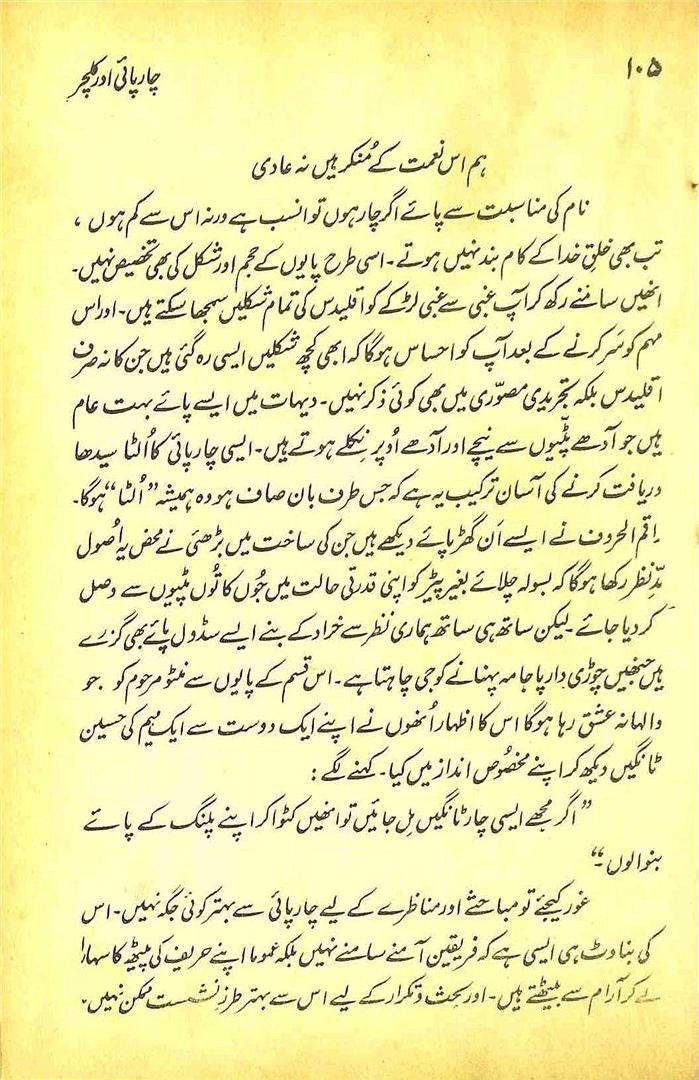 ۱۰۵
چارپائی اور کلچر
ہم اس نعمت کے مُنکر ہیں نہ عادی
نام کی مناسبت سے پائے اگر چار ہوں تو انسب ہے ورنہ اس سے کم ہوں ،
تب بھی خلقِ خدا کے کام بند نہیں ہوتے۔ اسی طرح پایوں کے حجم اور شکل کی بھی تخصیص نہیں۔
انھیں سامنے رکھ کر آپ غبی سے غبی لڑکے کو اقلیدس کی تمام شکلیں سمجھا سکتے ہیں۔ اور اس
مہم کو سَر کرنے کے بعد آپ کو احساس ہوگا کہ ابھی کچھ شکلیں ایسی رہ گئی ہیں جن کا نہ صرف
اقلیدس بلکہ تجریدی مصوّری میں بھی کوئی ذکر نہیں۔ دیہات میں ایسے پائے بہت عام
ہیں جو آدھے پٹّیوں سے نیچے اور آدھے اُوپر نکلے ہوتے ہیں۔ ایسی چارپائی کا اُلٹا سیدھا
دریافت کرنے کی آسان ترکیب یہ ہے کہ جس طرف بان صاف ہو وہ ہمیشہ ”اُلٹا“ ہوگا۔
راقم الحروف نے ایسے اَن گھڑ پائے دیکھے ہیں جن کی ساخت میں بڑھئی نے محض یہ اُصول
مدِّنظر رکھا ہوگا کہ بسولہ چلائے بغیر پیڑ کو اپنی قدرتی حالت میں جُوں کا تُوں پٹیوں سے وصل
کر دیا جائے۔ لیکن ساتھ ہی ساتھ ہماری نظر سے خراد کے بنے ایسے سڈول پائے بھی گزرے
ہیں جنھیں چوڑی دار پاجامہ پہنانے کو جی چاہتا ہے۔ اس قسم کے پایوں سے منٹو مرحوم کو جو
والہانہ عشق رہا ہوگا اس کا اظہار اُنھوں نے اپنے ایک دوست سے ایک میم کی حسین
ٹانگیں دیکھ کر اپنے مخصُوص انداز میں کیا۔ کہنے لگے :
”اگر مجھے ایسی چار ٹانگیں مِل جائیں تو انھیں کٹوا کر اپنے پلنگ کے پائے
بنوا لوں۔“
غور کیجئے تو مباحثے اور مناظرے کے لیے چارپائی سے بہتر کوئی جگہ نہیں۔ اس
کی بناوٹ ہی ایسی ہے کہ فریقین آمنے سامنے نہیں بلکہ عموماً اپنے حریف کی پیٹھ کا سہارا
لے کر آرام سے بیٹھتے ہیں۔ اور بحث و تکرار کے لیے اس سے بہتر طرزِ نشست ممکن نہیں،